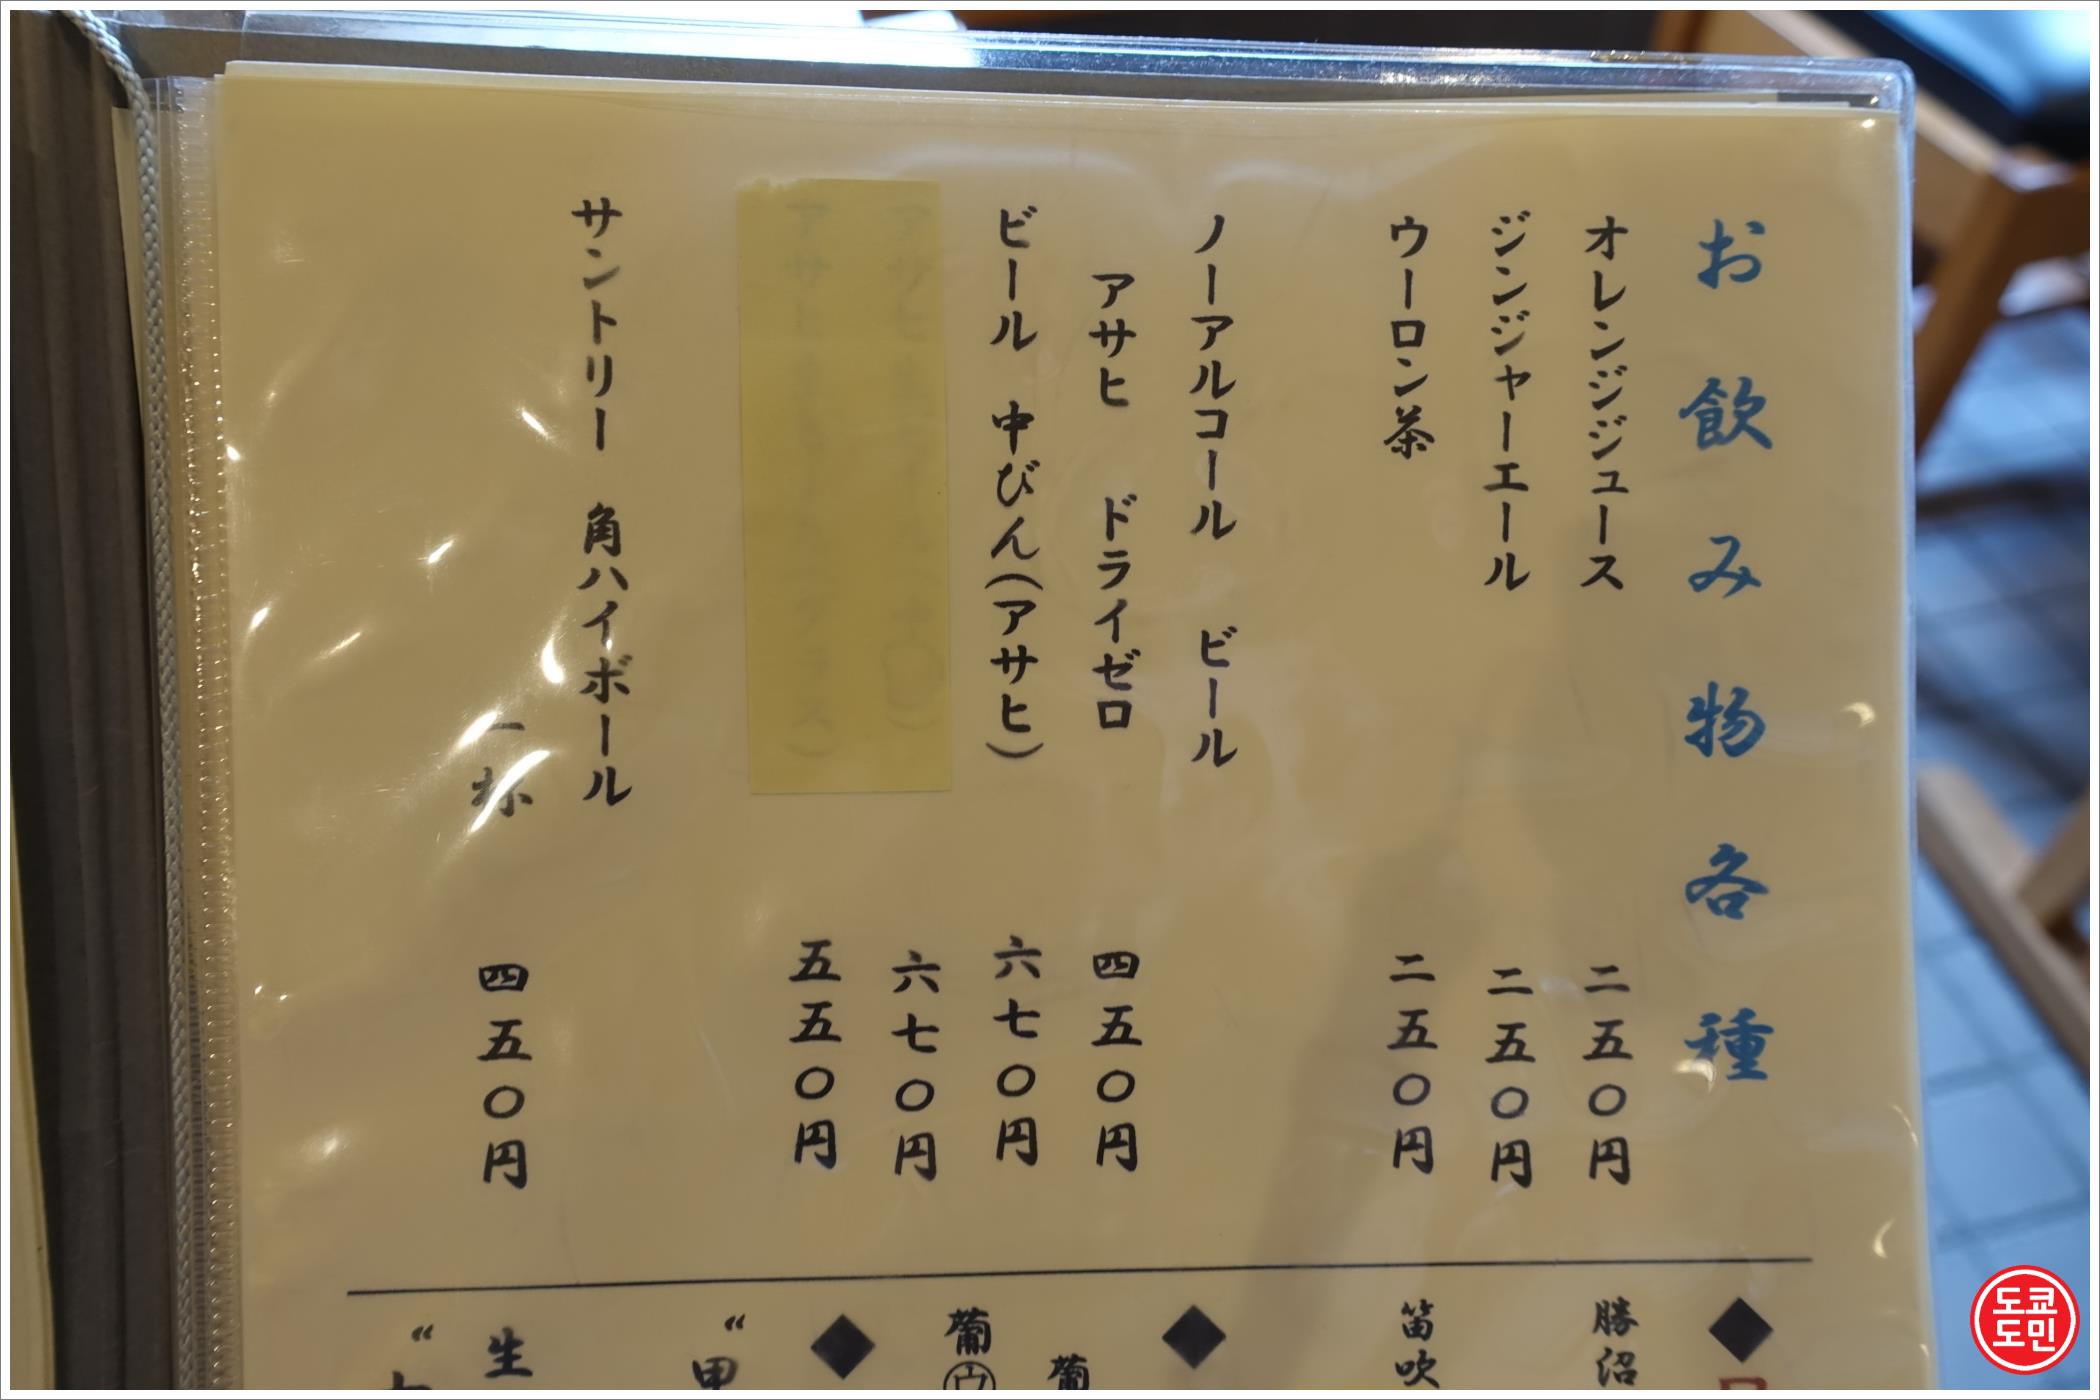 お飲み物各種
オレンジジュース 二五〇円
ジンジャーエール 二五〇円
ウーロン茶 二五〇円
ノーアルコール ビール
アサヒ ドライゼロ 四五〇円
ビール 中びん(アサヒ) 六七〇円
六七〇円
五五〇円
サントリー 角ハイボール
一杯 四五〇円
◆
勝沼
笛吹
◆
葡
葡
◆
“甲
生
“
도쿄
도민